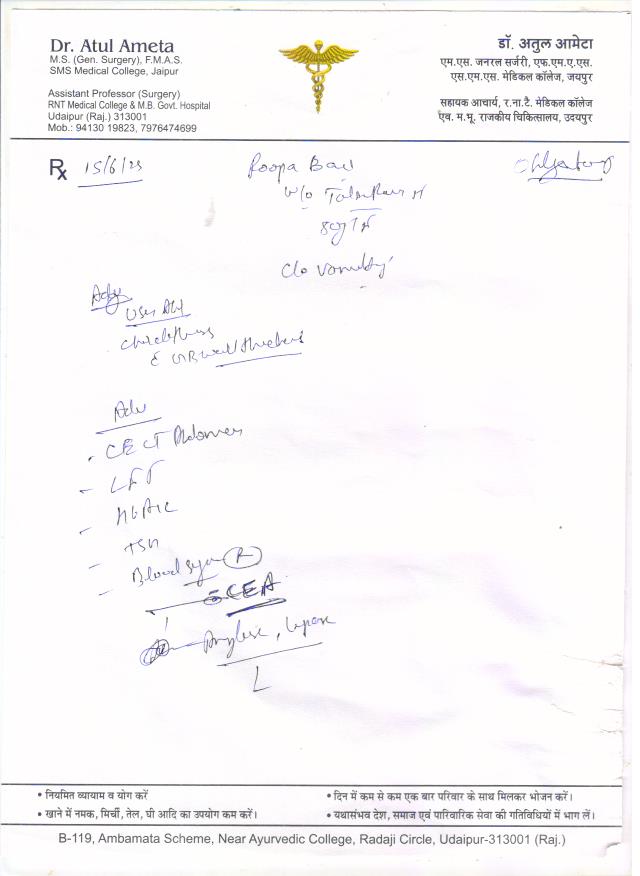 Dr. Atul Ameta
M.S. (Gen. Surgery), F.M.A.S.
SMS Medical College, Jaipur
Assistant Professor (Surgery)
RNT Medical College & M.B. Govt. Hospital
Udaipur (Raj.) 313001
Mob.: 94130 19823, 7976474699
डॉ. अतुल आमेटा
एम.एस. जनरल सर्जरी, एफ.एम.ए.एस.
एस.एम.एस. मेडिकल कॉलेज, जयपुर
सहायक आचार्य, र.ना.टै. मेडिकल कॉलेज
एंव. म.भू. राजकीय चिकित्सालय, उदयपुर
Rx 15/6/23
Roopa Bai
W/o
80y
C/o Vomiting
Adv
USG Abd
Adv
CECT Abdomen
LFT
HbA1C
TSH
Blood sugar (R)
CEA
Amylase, Lipase
• नियमित व्यायाम व योग करें
• खाने में नमक, मिर्ची, तेल, घी आदि का उपयोग कम करें।
• दिन में कम से कम एक बार परिवार के साथ मिलकर भोजन करें।
• यथासंभव देश, समाज एवं पारिवारिक सेवा की गतिविधियों में भाग लें।
B-119, Ambamata Scheme, Near Ayurvedic College, Radaji Circle, Udaipur-313001 (Raj.)